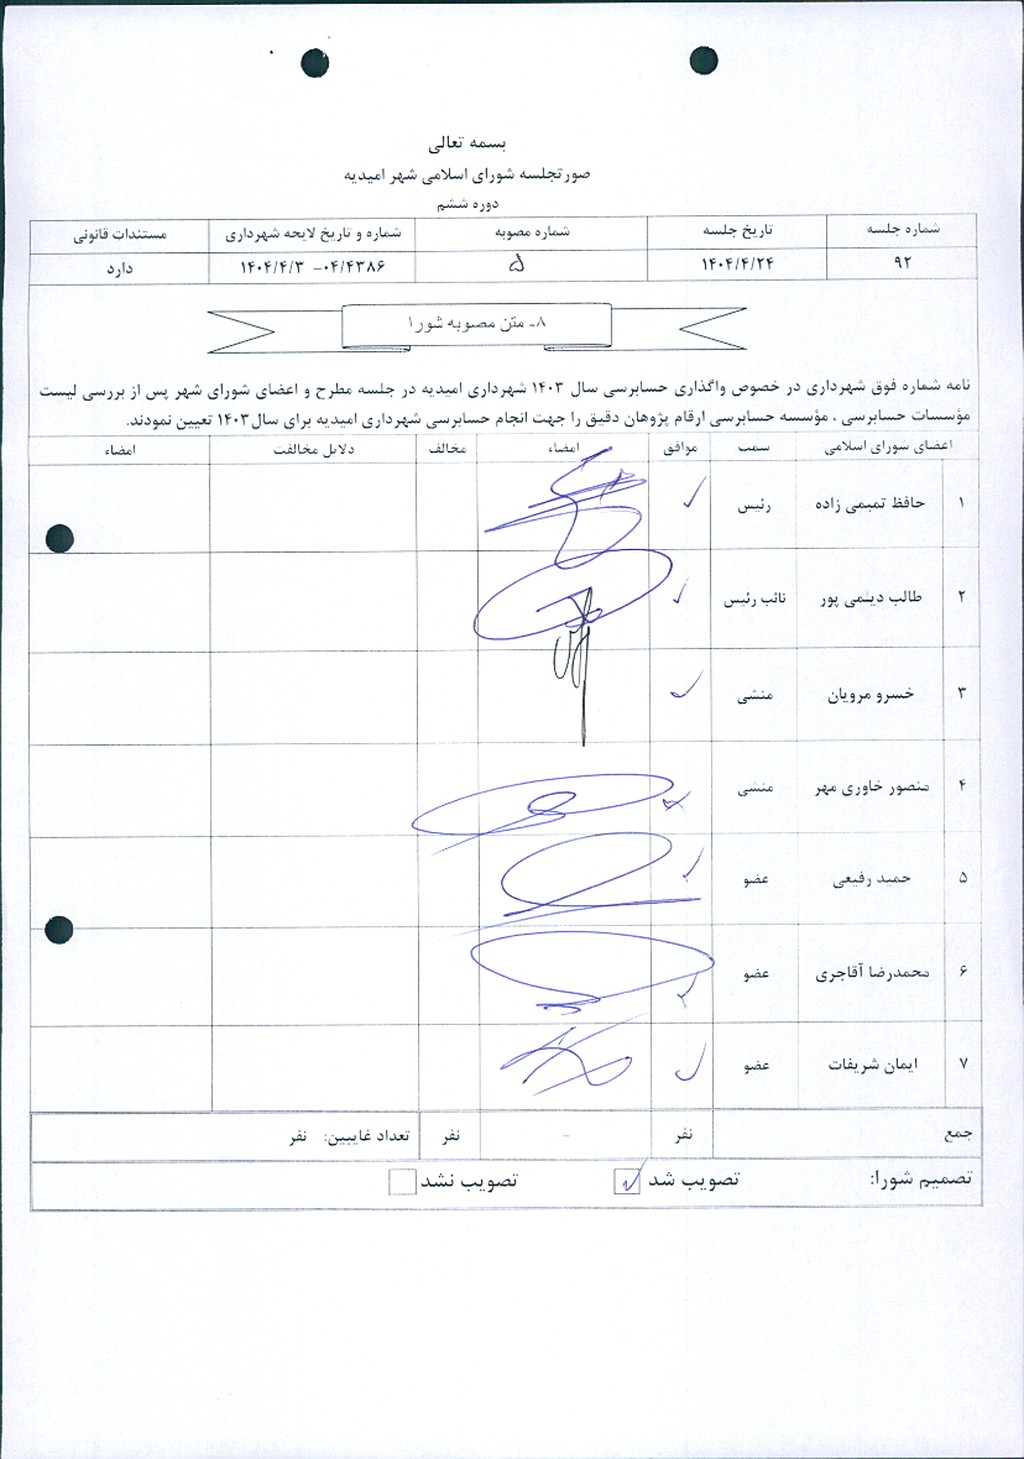 بسمه تعالی
صورتجلسه شورای اسلامی شهر امیدیه
دوره ششم
شماره جلسه تاریخ جلسه شماره مصوبه شماره و تاریخ لایحه شهرداری مستندات قانونی
۹۲ ۱۴۰۴/۴/۲۴ ۵ ۰۴/۴۳۸۶ – ۱۴۰۴/۴/۳ دارد
۸- متن مصوبه شورا
نامه شماره فوق شهرداری در خصوص واگذاری حسابرسی سال ۱۴۰۳ شهرداری امیدیه در جلسه مطرح و اعضای شورای شهر پس از بررسی لیست
مؤسسات حسابرسی ، مؤسسه حسابرسی ارقام پژوهان دقیق را جهت انجام حسابرسی شهرداری امیدیه برای سال ۱۴۰۳ تعیین نمودند.
اعضای شورای اسلامی سمت موافق امضاء مخالف دلایل مخالفت امضاء
۱ حافظ تمیمی زاده رئیس
۲ طالب دیلمی پور نائب رئیس
۳ خسرو مرویان منشی
۴ منصور خاوری مهر منشی
۵ حمید رفیعی عضو
۶ محمدرضا آقاجری عضو
۷ ایمان شریفات عضو
جمع نفر - نفر تعداد غایبین: نفر
تصمیم شورا: تصویب شد تصویب نشد